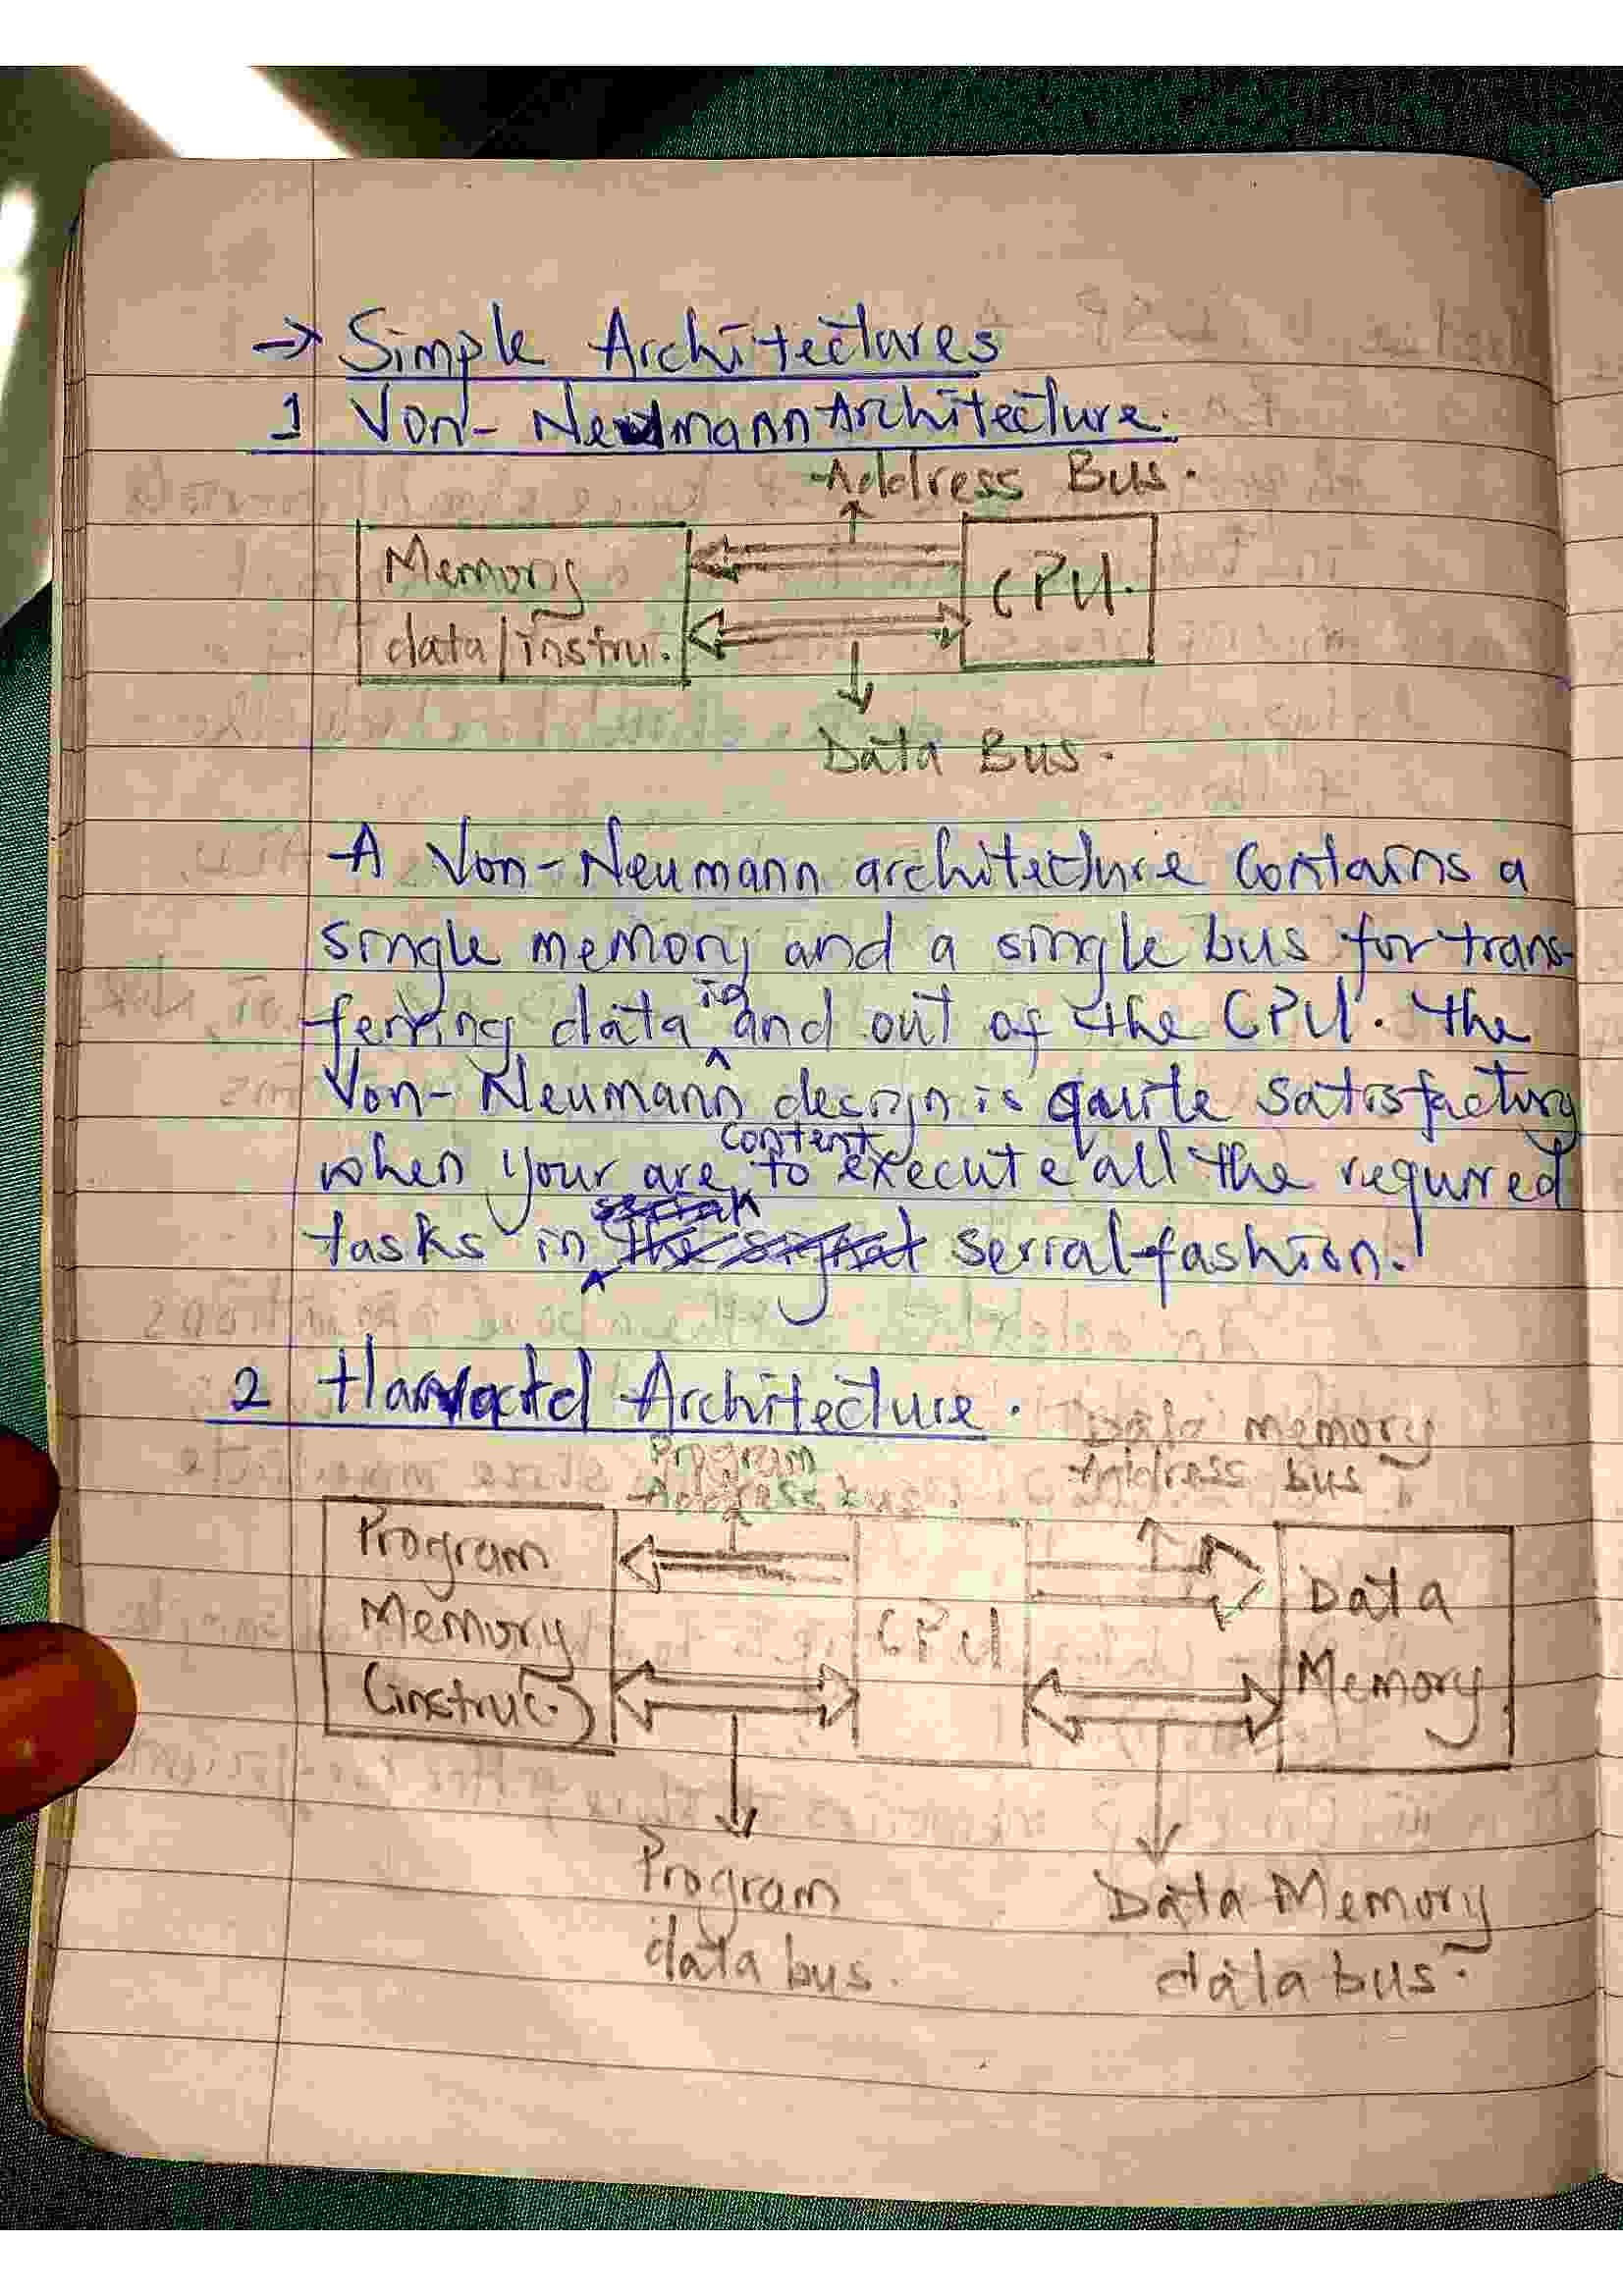 → Simple Architectures
1 Von- Neumann Architecture.
Address Bus.
Memory
data/instru.
CPU.
Data Bus.
A Von-Neumann architecture contains a
single memory and a single bus for trans-
ferring data in and out of the CPU. the
Von- Neumann design is quite satisfactory
when your are content to execute all the required
tasks in serial fashion.
2 Harvard Architecture.
Program
Address bus.
Data memory
Address bus
Program
Memory
(instruc.)
CPU
Data
Memory
Program
data bus.
Data Memory
data bus.